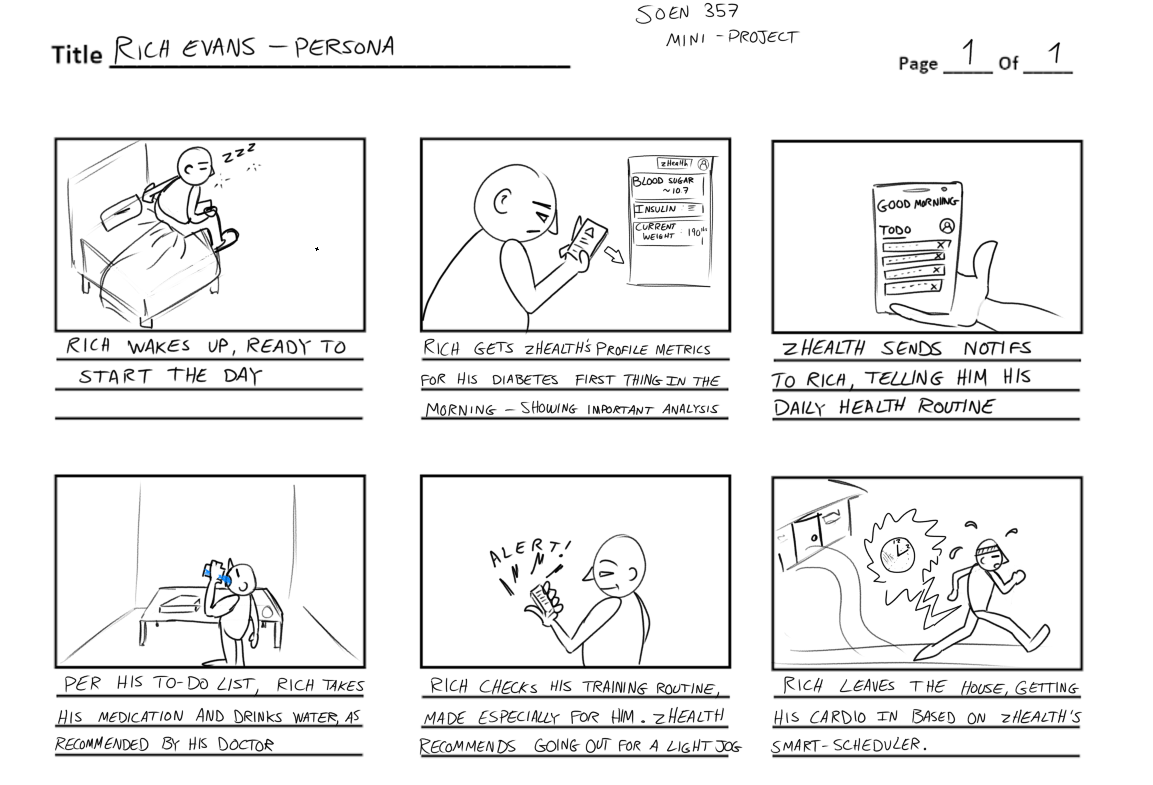 SOEN 357
MINI - PROJECT
Title RICH EVANS - PERSONA
Page 1 Of 1
ZZZ
RICH WAKES UP, READY TO
START THE DAY
zHealth!
BLOOD SUGAR
~10.7
INSULIN
CURRENT
WEIGHT - 190lb
RICH GETS zHEALTH'S PROFILE METRICS
FOR HIS DIABETES FIRST THING IN THE
MORNING - SHOWING IMPORTANT ANALYSIS
GOOD MORNING
TODO
ZHEALTH SENDS NOTIFS
TO RICH, TELLING HIM HIS
DAILY HEALTH ROUTINE
PER HIS TO-DO LIST, RICH TAKES
HIS MEDICATION AND DRINKS WATER, AS
RECOMMENDED BY HIS DOCTOR
ALERT!
RICH CHECKS HIS TRAINING ROUTINE,
MADE ESPECIALLY FOR HIM. ZHEALTH
RECOMMENDS GOING OUT FOR A LIGHT JOG
RICH LEAVES THE HOUSE, GETTING
HIS CARDIO IN BASED ON ZHEALTH'S
SMART-SCHEDULER.